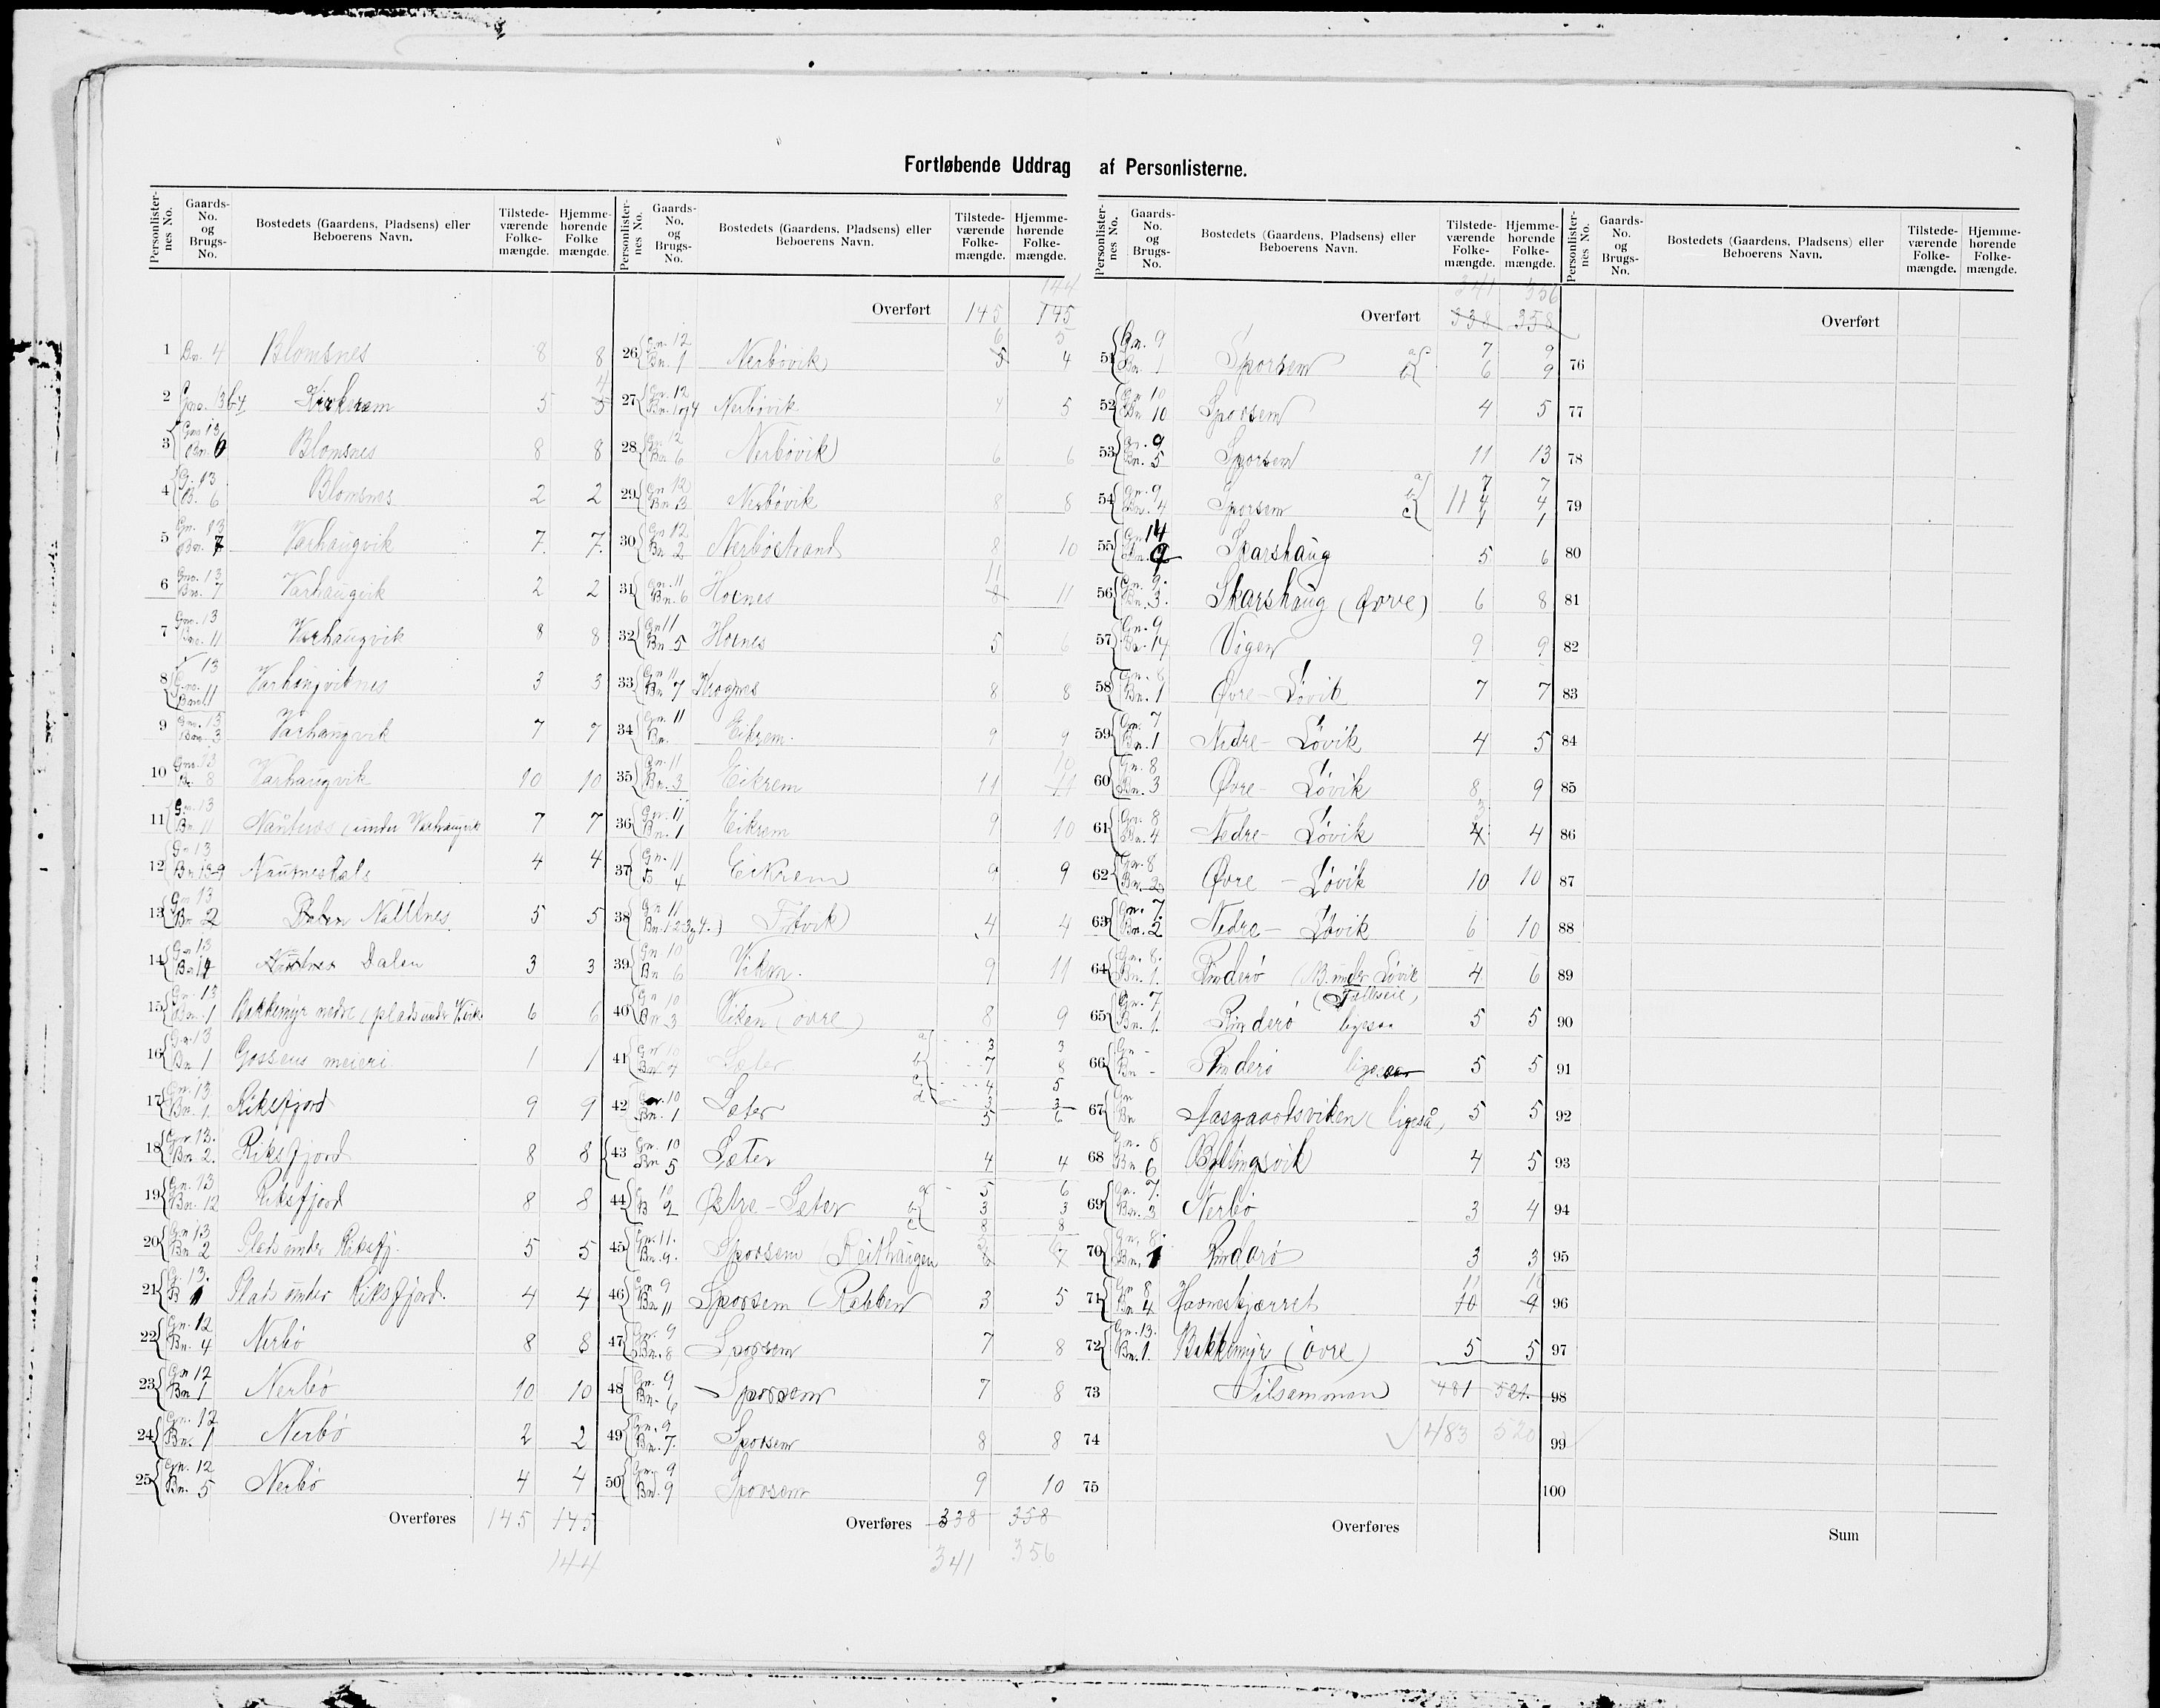 Fortløbende Uddrag af Personlisterne.
Personlisternes No. Gaards-No. og Brugs-No. Bostedets (Gaardens, Pladsens) eller Beboerens Navn. Tilstedeværende Folkemængde. Hjemmehørende Folkemængde.
1 Bn. 4 Blomsnes 8 8
2 Gno. 13 b4 Kirkerem 5 5 4
3 Gno 13 Bn. 6 Blomsnes 8 8
4 G. 13 B. 6 Blomsnes 2 2
5 Gn. 13 Bn. 7 Varhaugvik 7. 7.
6 Gno. 13 Bn. 7 Varhaugvik 2 2
7 Gno. 13 Bno. 11 Varhaugvik 8 8
8 13 Gno. Bno 11 Varhaugviknes 3 3
9 Gno. 13 Bno. 3 Varhaugvik 7 7
10 Gno. 13 Bn. 8 Varhaugvik 10 10
11 Gn. 13 Bn 11 (under Varhaugvik 7 7
12 Gn 13 4 4
13 Gn 13 Bn 2 5 5
14 Gn 13 Dalen 3 3
15 Gn. 13 Bn. 1 Bakkemyr nedre (plads under 6 6
16 Gn 13 Bn 1 Gossens meieri 1 1
17 Gn. 13 Bn. 1. Riksfjord 9 9
18 Gn. 13. Bn. 2. Riksfjord 8 8
19 Gn. 13 Bn. 12 Riksfjord 8 8
20 Gn 13 Bn 2 Plads under Riksfj. 5 5
21 G. 13. B 1 Plads under Riksfjord. 4 4
22 Gn. 12 Bn. 4 Nerbö 8 8
23 Gn 12 Bn 1 Nerbö 10 10
24 Gn. 12 Bn. 1 Nerbö 2 2
25 Gn. 12 Bn. 5 Nerbö 4 4
Overføres 145 145
144
Personlisternes No. Gaards-No. og Brugs-No. Bostedets (Gaardens, Pladsens) eller Beboerens Navn. Tilstedeværende Folkemængde. Hjemmehørende Folkemængde.
144
Overført 145 145
26 Gn. 12 Bn. 1 Nerbøvik 6 5 5 4
27 Gn. 12 Bn. 1 og 4 Nerbøvik 4 5
28 Gn. 12 Bn 6 Nerbøvik 6 6
29 Gn 12 Bn 3 Nerbøvik 8 8
30 Gn 12 Bn 2 Nerbøstrand 8 10
31 Gn. 11 Bn. 6 Hoenes 11 8 11
32 Gn 11 Bn 5 Hoenes 5 6
33 Gn 11 Bn 7 Krognes 8 8
34 Gn. 11 Bn. Eikrem. 9 9
35 Gn. 11 Bn. 3 Eikrem 11 10 11
36 Gn. 11 Bn. 1 Eikrem 9 10
37 Gn. 11 B 4 Eikrem 9 9
38 Gn 11 Bn. 1-2-3 og 4. 4 4
39 Gn 10 Bn 6 Viken. 9 11
40 Gn 10 Bn 3 Viken (övre) 8 9
41 Gn 10 Sæter a 3 3
b 7 8
c 4 5
d 3 3
42 Gn. 10 Bn. 1 Sæter 5 6
43 Gn. 10 Bn 5 Sæter 4 4
44 G 10 B 2 Østre-Sæter a 5 6
b 3 3
c 8 8
45 Gn. 11. Bn. 9. Sporsem (Reithaugen 8 7
46 Gn 9 Bn 11 Sporsem (Rabben 3 5
47 Gn. 9 Bn. 8 Sporsem 7 8
48 Gn. 9 Bn. 6 Sporsem 7 8
49 Gn. 9 Bn. 7. Sporsem 8 8
50 Gn. 9 Bn. 9 Sporsem 9 10
Overføres 338 358
341 356
Personlisternes No. Gaards-No. og Brugs-No. Bostedets (Gaardens, Pladsens) eller Beboerens Navn. Tilstedeværende Folkemængde. Hjemmehørende Folkemængde.
341 356
Overført 338 358
51 Gn. 9 Bn. 1 Sporsem a 7 9
b 6 9
52 Gn 10 Bn 10 Sporsem 4 5
53 Gn. 9 Bn. 5 Sporsem 11 13
54 Gn. 9 Bn. 4 Sporsem a 7 7
b 11 4 4
c 1 1
55 Gn. 14 Bn. 9 Skarshaug 5 6
56 Gn. 9. Bn. 3. Skarshaug (Øvre) 6 8
57 Gn. 9 Bn. 14 Vigen 9 9
58 Gn. 8 Bn. 1 Øvre-Lövik 7 7
59 Gn. 7 Bn. 1 Nedre-Lövik 4 5
60 Gn. 8 Bn. 3 Øvre-Lövik 8 9
61 Gn. 8 Bn. 4 Nedre-Lövik 3 4 4
62 Gn. 8 Bn. 2 Øvre-Lövik 10 10
63 Gn. 7. Bn. 2 Nedre-Lövik 6 10
64 Gn. 8. Bn. 1. Rinderö (B. under Lövik 4 6
(Fælleseie)
65 Gn. 7 Bn. 1. Rinderö ligesaa 5 5
66 Gn - Bn - Rinderö ligesaa 5 5
67 Gn Bn Aasgaardsviken (ligeså) 5 5
68 Gn. 8 Bn. 6 4 5
69 Gn. 7. Bn. 3 Nerbö 3 4
70 Gn. 8. Bn. 1 Rinderö 3 3
71 Gn 8 Bn. 4 Havneskjærret 11 10 10 9
72 Gn. 13. Bn. 1. Bakkemyr (övre) 5 5
73 Tilsammen 481 521
74 483 520
75
Overføres
Personlisternes No. Gaards-No. og Brugs-No. Bostedets (Gaardens, Pladsens) eller Beboerens Navn. Tilstedeværende Folkemængde. Hjemmehørende Folkemængde.
Overført
76
77
78
79
80
81
82
83
84
85
86
87
88
89
90
91
92
93
94
95
96
97
98
99
100
Sum